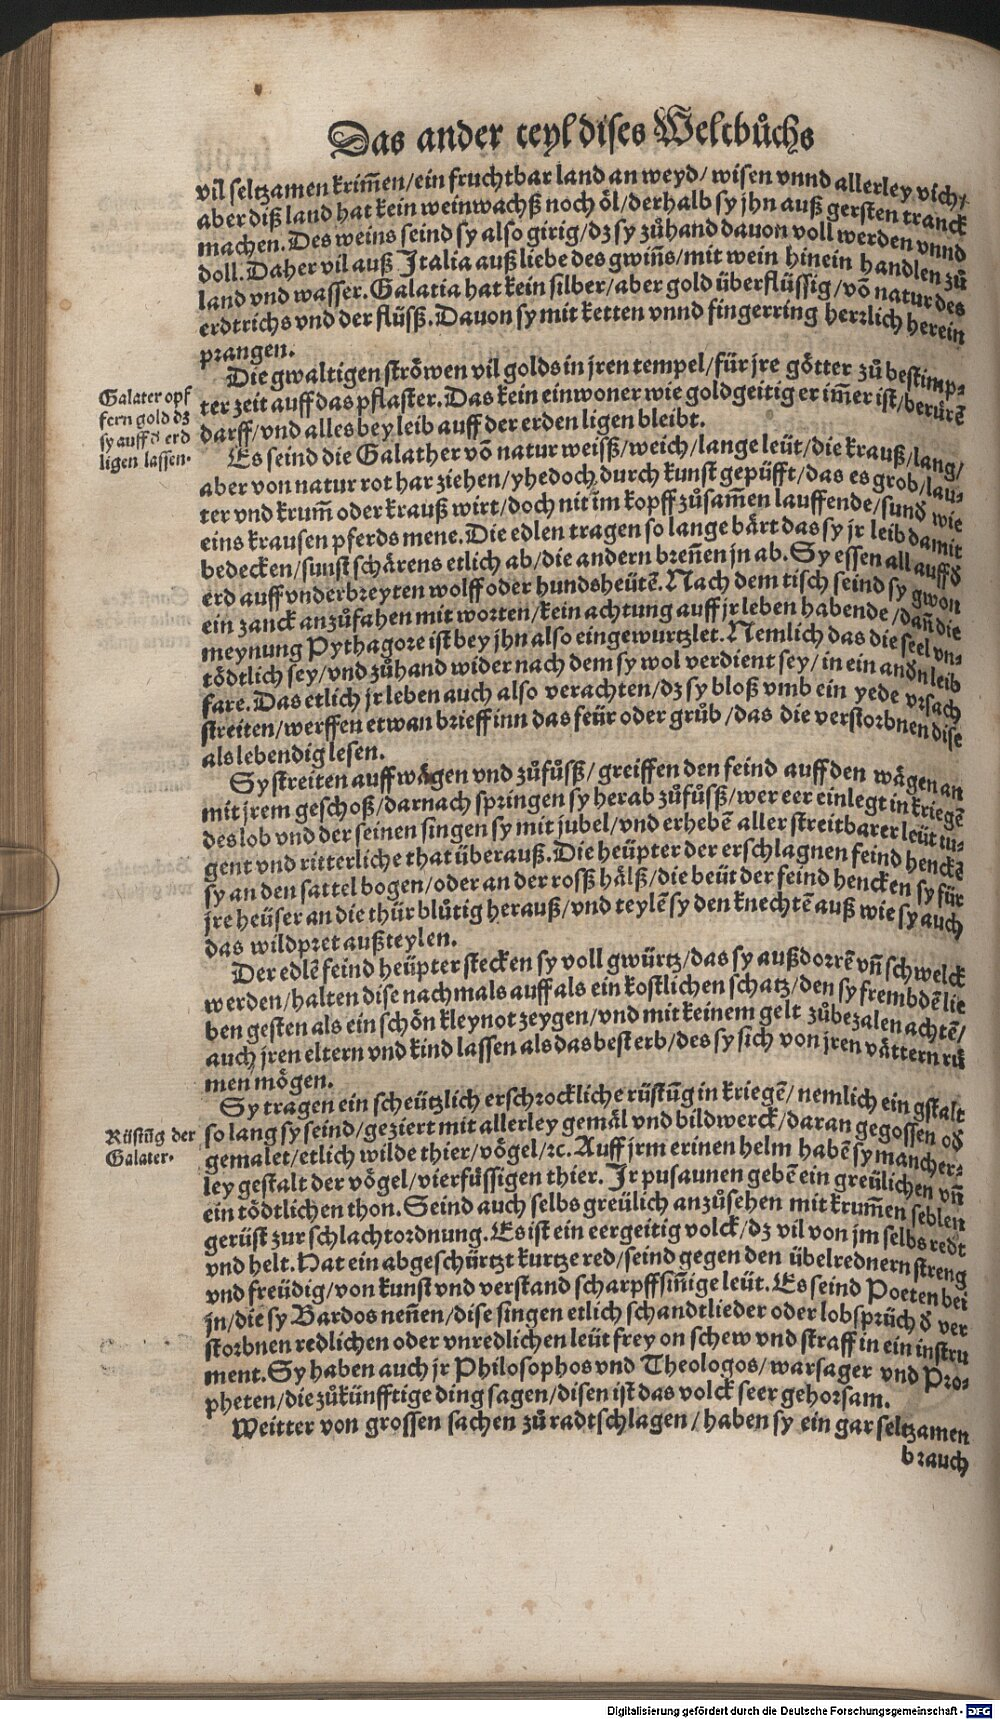 Das ander teyl dises Weltbůchs
vil seltzamen krim̃en/ein fruchtbar land an weyd/ wisen vnnd allerley vich/
aber diß land hat kein weinwachß noch öl/derhalb sy jhn auß gersten tranck
machen. Des weins seind sy also girig/dz sy zůhand dauon voll werden vnnd
doll. Daher vil auß Italia auß liebe des gwiñs/mit wein hinein handlen zů
land vnd wasser. Galatia hat kein silber/aber gold überflüssig/võ natur des
erdtrichs vnd der flüsß. Dauon sy mit ketten vnnd fingerring herrlich herein
prangen.
Die gwaltigen ströwen vil golds in jren tempel/für jre götter zů bestimp-
ter zeit auff das pflaster. Das kein einwoner wie goldgeitig er im̃er ist/berürẽ
darff/vnd alles bey leib auff der erden ligen bleibt.
Galater opf
fern gold dz
sy auff d̕ erd
ligen lassen.
Es seind die Galather võ natur weisß/weich/lange leüt/die krauß/lang/
aber von natur rot har ziehen/yhedoch durch kunst gepüfft/das es grob/lau-
ter vnd krum̃ oder krauß wirt/doch nit im kopff zůsam̃en lauffende/sund wie
eins krausen pferds mene. Die edlen tragen so lange bärt das sy jr leib damit
bedecken/sunst schärens etlich ab/die andern breñen jn ab. Sy essen all auff d̕
erd auff vnderbreyten wolff oder hundsheütẽ. Nach dem tisch seind sy gwon
ein zanck anzůfahen mit worten/kein achtung auff jr leben habende/dañ die
meynung Pythagore ist bey jhn also eingewurtzlet. Nemlich das die seel vn-
tödtlich sey/vnd zůhand wider nach dem sy wol verdient sey/in ein andn leib
fare. Das etlich jr leben auch also verachten/dz sy bloß vmb ein yede vrsach
streiten/werffen etwan brieff inn das feür oder grůb/das die verstorbnen dise
als lebendig lesen.
Sy streiten auff wägen vnd zůfůsß/ greiffen den feind auff den wägen an
mit jrem geschoß/darnach springen sy herab zůfůsß/wer eer einlegt in kriegẽ
des lob vnd der seinen singen sy mit jubel/vnd erhebẽ aller streitbarer leüt tu-
gent vnd ritterliche that überauß. Die heüpter der erschlagnen feind henckẽ
sy an den sattelbogen/oder an der rosß hälß/die beüt der feind hencken sy für
jre heüser an die thür blůtig herauß/vnd teylẽ sy den knechtẽ auß wie sy auch
das wildpret außteylen.
Der edlẽ feind heüpter stecken sy voll gwürtz/das sy außdorrẽ vñ schwelck
werden/halten dise nachmals auff als ein kostlichen schatz/den sy frembdẽ lie
ben gesten als ein schön kleynot zeygen/vnd mit keinem gelt zůbezalen achtẽ/
auch jren eltern vnd kind lassen als das best erb/des sy sich von jren vättern rů
men mögen.
Sy tragen ein scheützlich erschrockliche rüstũg in kriegẽ/ nemlich ein gstalt
Rüstũg der
Galater.
so lang sy seind/geziert mit allerley gemäl vnd bildwerck/daran gegossen od̕
gemalet/etlich wilde thier/vögel/ꝛc. Auff jrm erinen helm habẽ sy mancher-
ley gestalt der vögel/vierfüssigen thier. Ir pusaunen gebẽ ein greülichen vñ
ein tödtlichen thon. Seind auch selbs greülich anzůsehen mit krum̃en seblen
gerüst zur schlachtordnung. Es ist ein eergeitig volck/dz vil von jm selbs redt
vnd helt. Hat ein abgeschürtzt kurtze red/seind gegen den übelrednern streng
vnd freüdig/von kunst vnd verstand scharpffsiñige leüt. Es seind Poeten bei
jn/die sy Bardos neñen/dise singen etlich schandtlieder oder lobsprüch d̕ ver
storbnen redlichen oder vnredlichen leüt frey on schew vnd straff in ein instru
ment. Sy haben auch jr Philosophos vnd Theologos/warsager vnd Pro-
pheten/die zůkünfftige ding sagen/disen ist das volck seer gehorsam.
Weitter von grossen sachen zů radtschlagen/haben sy ein gar seltzamen
brauch
Digitalisierung gefördert durch die Deutsche Forschungsgemeinschaft - DFG